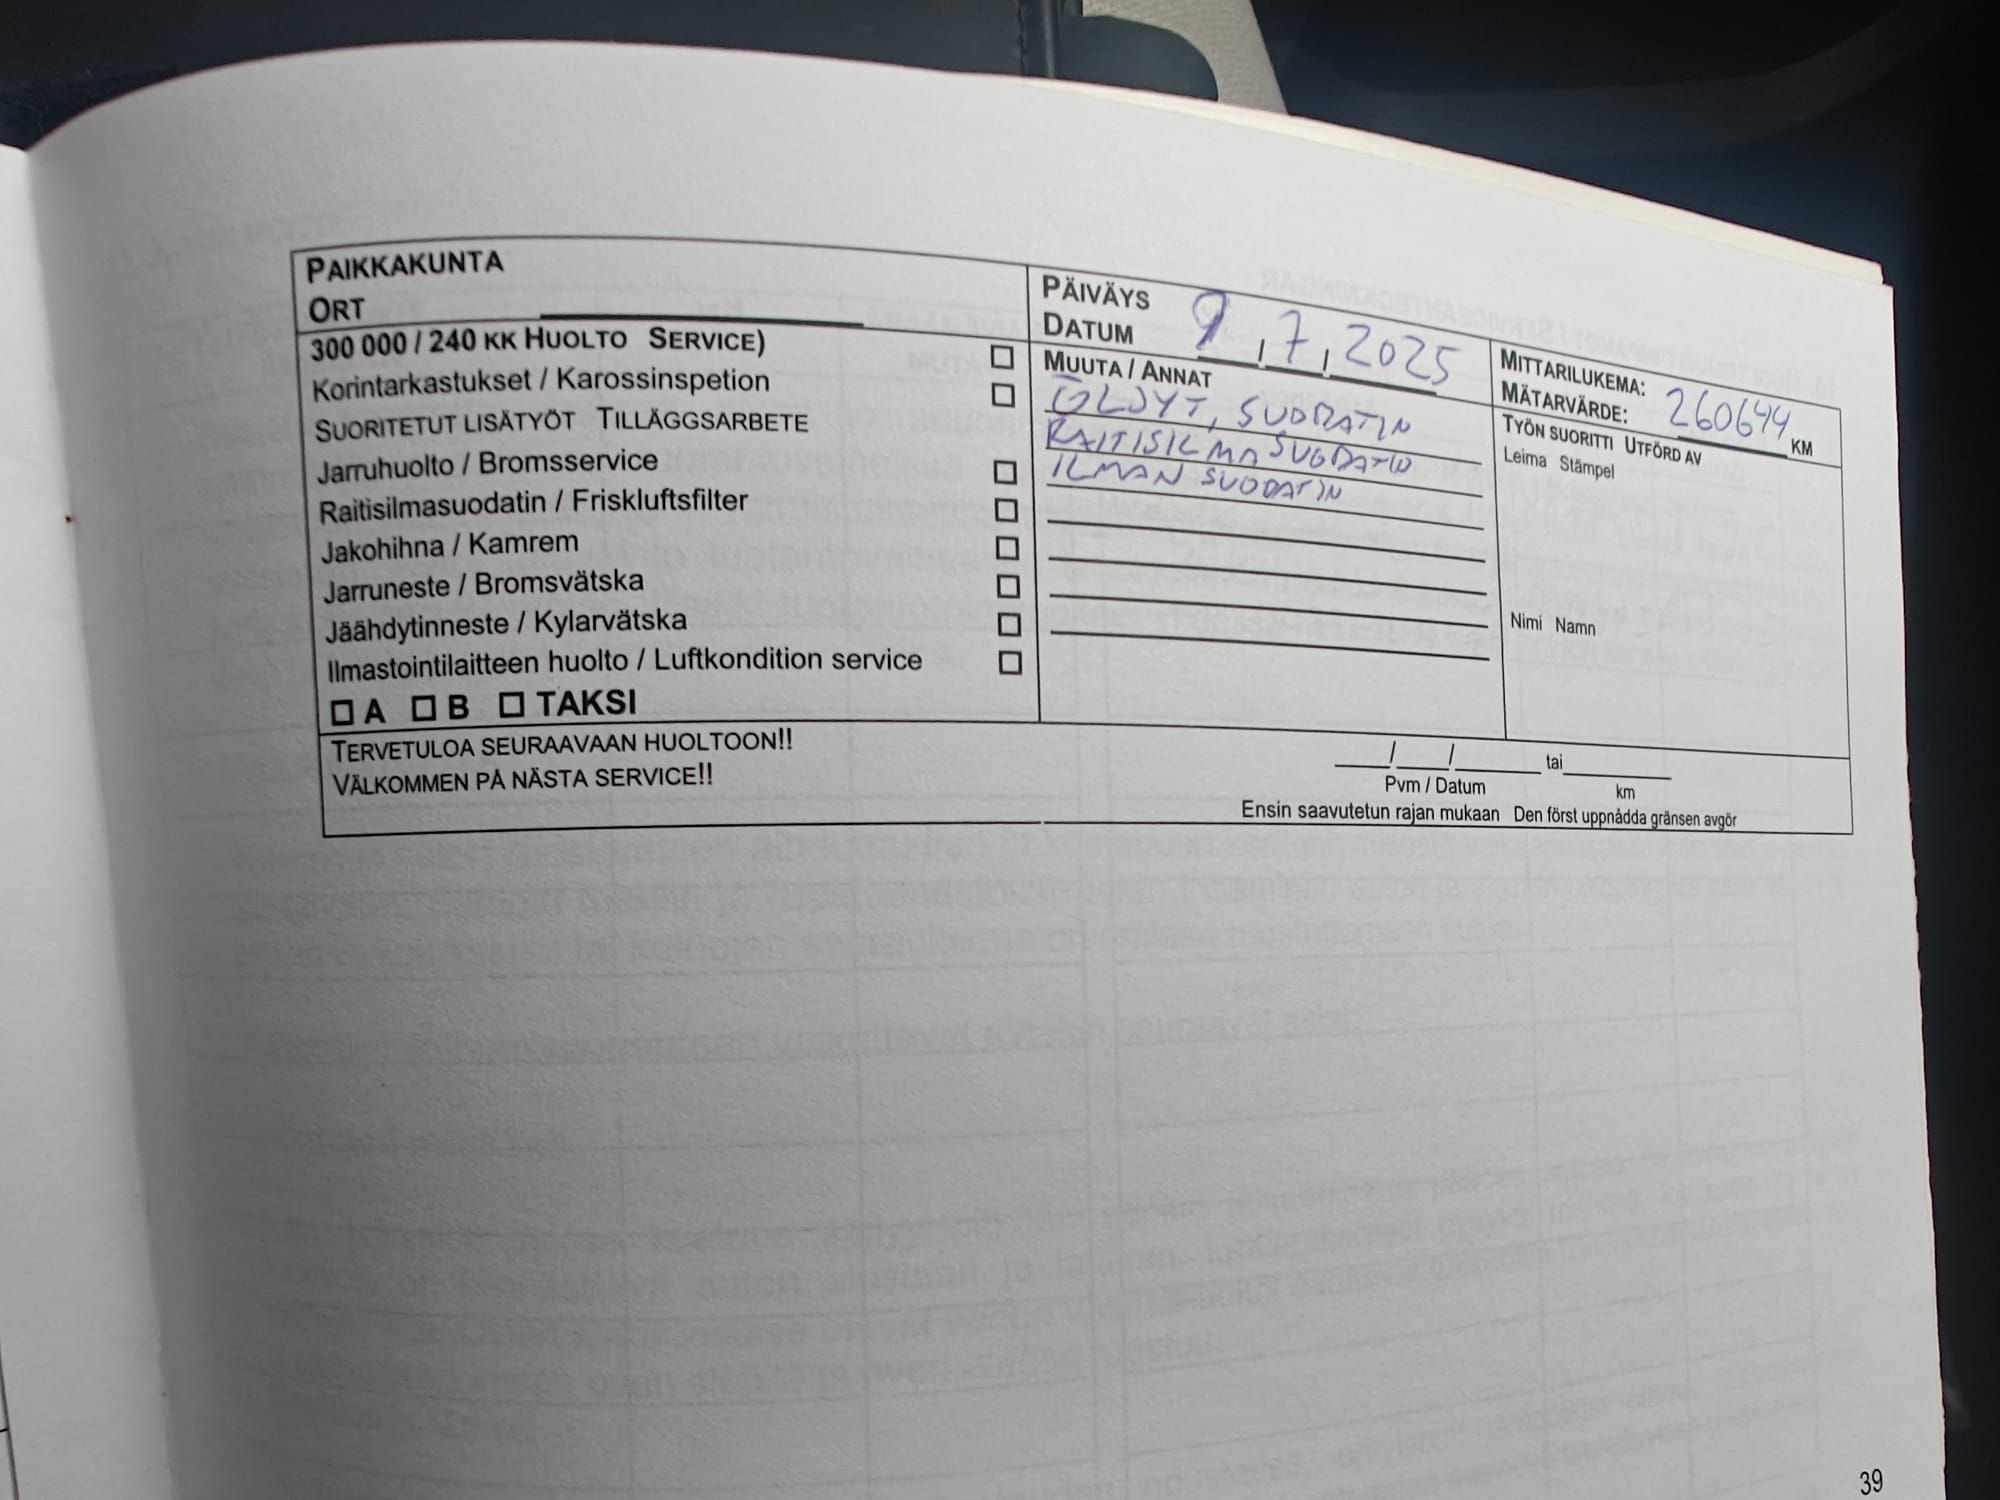 PAIKKAKUNTA
ORT
300 000 / 240 KK HUOLTO SERVICE)
Korintarkastukset / Karossinspetion
SUORITETUT LISÄTYÖT TILLÄGGSARBETE
Jarruhuolto / Bromsservice
Raitisilmasuodatin / Friskluftsfilter
Jakohihna / Kamrem
Jarruneste / Bromsvätska
Jäähdytinneste / Kylarvätska
Ilmastointilaitteen huolto / Luftkondition service
A B TAKSI
PÄIVÄYS
DATUM 9 / 7 / 2025
MUUTA / ANNAT
ÖLJYT, SUODATIN
RAITISILMASUODATIN
ILMAN SUODATIN
MITTARILUKEMA:
MÄTARVÄRDE: 260644 KM
TYÖN SUORITTI UTFÖRD AV
Leima Stämpel
Nimi Namn
TERVETULOA SEURAAVAAN HUOLTOON!!
VÄLKOMMEN PÅ NÄSTA SERVICE!!
/ / tai
Pvm / Datum km
Ensin saavutetun rajan mukaan Den först uppnådda gränsen avgör
39